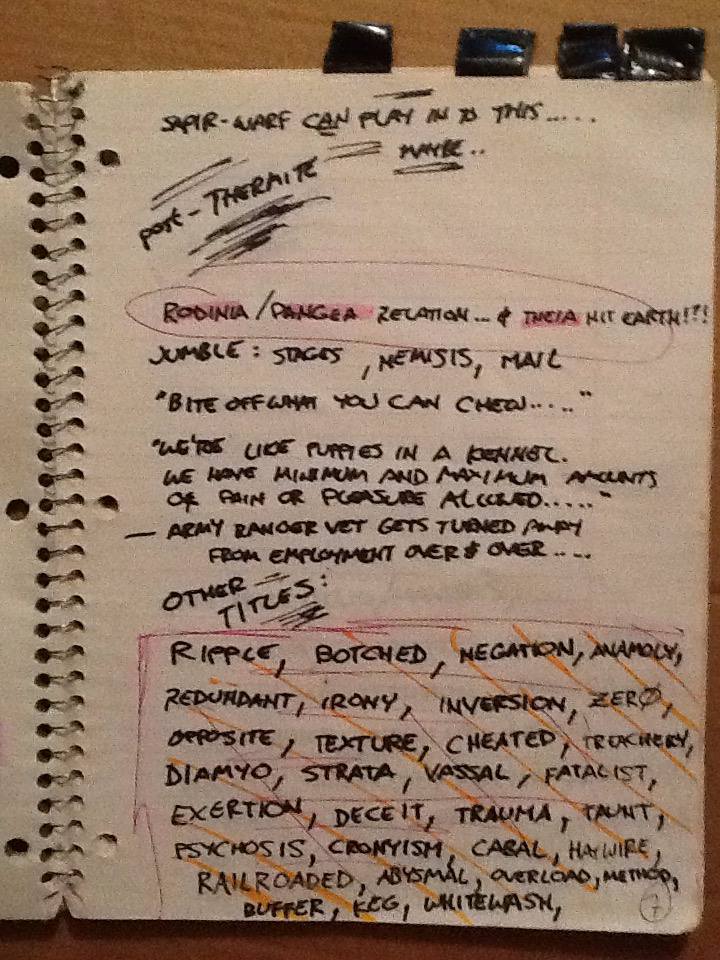 SAPIR-WARF CAN PLAY IN TO THIS.....
MAYBE..
POST-THERMITE
RODINIA/PANGEA RELATION... & THEIA HIT EARTH!?!
JUMBLE: STAGES, NEMISIS, MAIL
"BITE OFF WHAT YOU CAN CHEW....."
"WE'RE LIKE PUPPIES IN A KENNEL.
WE HAVE MINIMUM AND MAXIMUM AMOUNTS
OF PAIN OR PLEASURE ALLOWED....."
— ARMY RANGER VET GETS TURNED AWAY
FROM EMPLOYMENT OVER & OVER....
OTHER
TITLES:
RIPPLE, BOTCHED, NEGATION, ANAMOLY,
REDUNDANT, IRONY, INVERSION, ZERØ,
OPPOSITE, TEXTURE, CHEATED, TREACHERY,
DIAMYO, STRATA, VASSAL, FATALIST,
EXERTION, DECEIT, TRAUMA, TAUNT,
PSYCHOSIS, CRONYISM, CABAL, HAYWIRE,
RAILROADED, ABYSMAL, OVERLOAD, METHOD,
BUFFER, KEG, WHITEWASH,
7